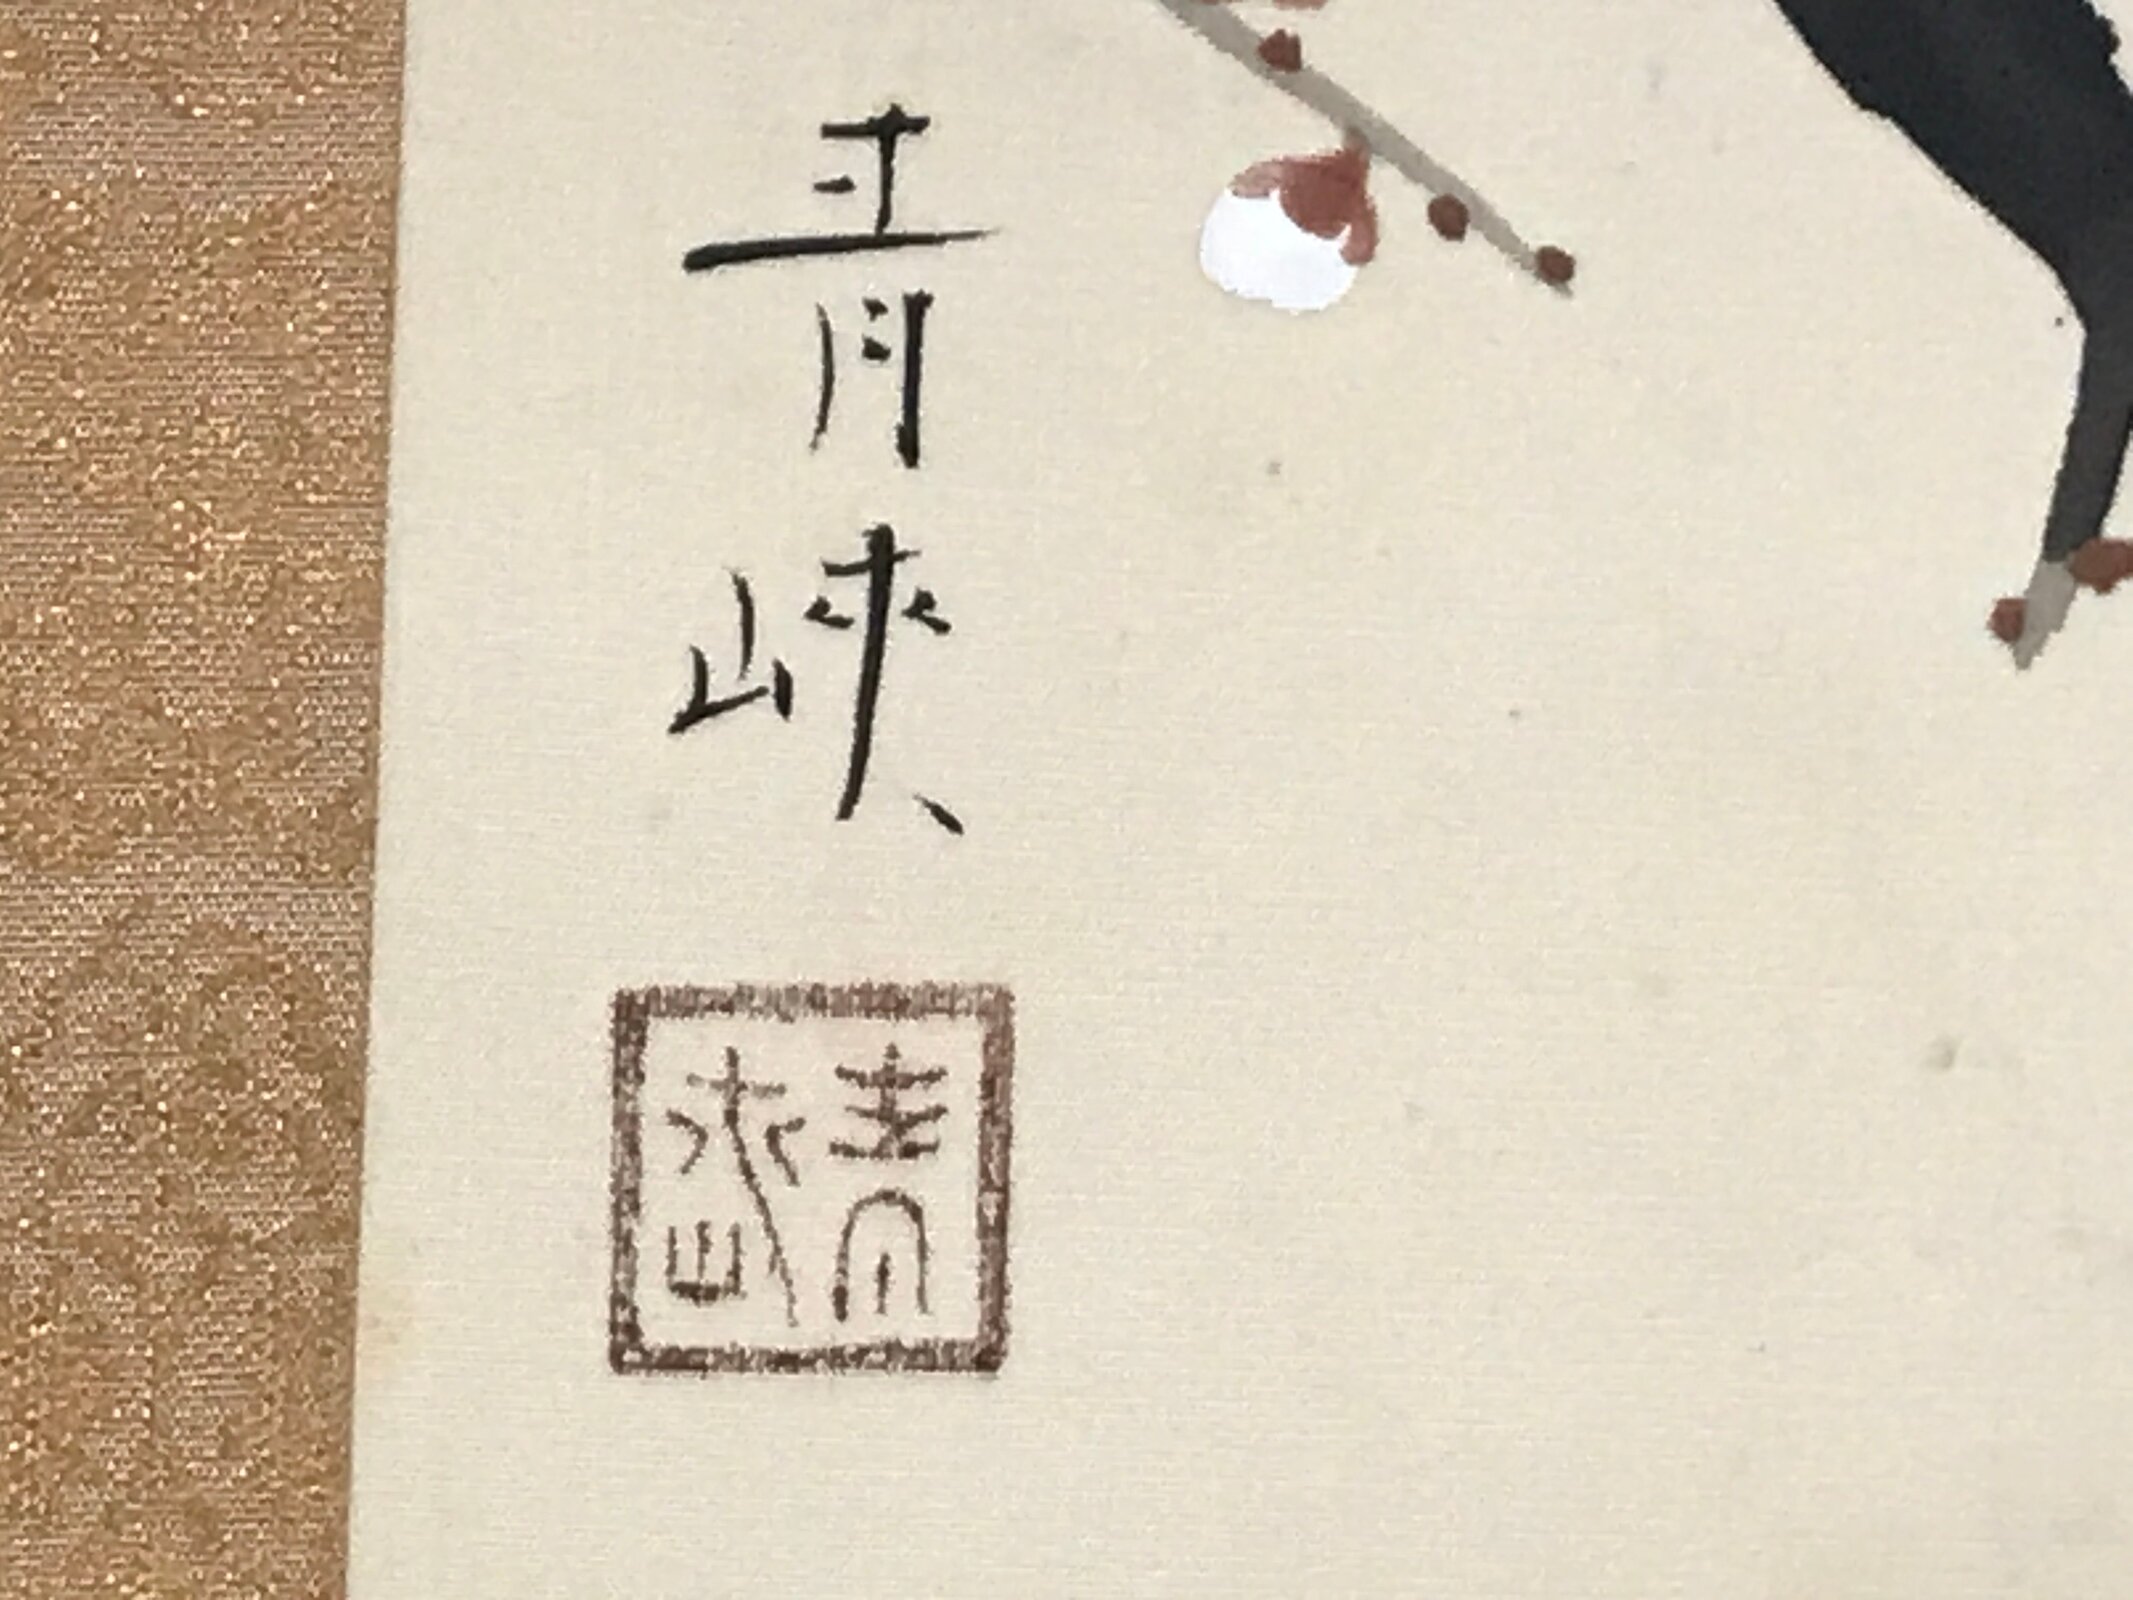 青峡
青峡